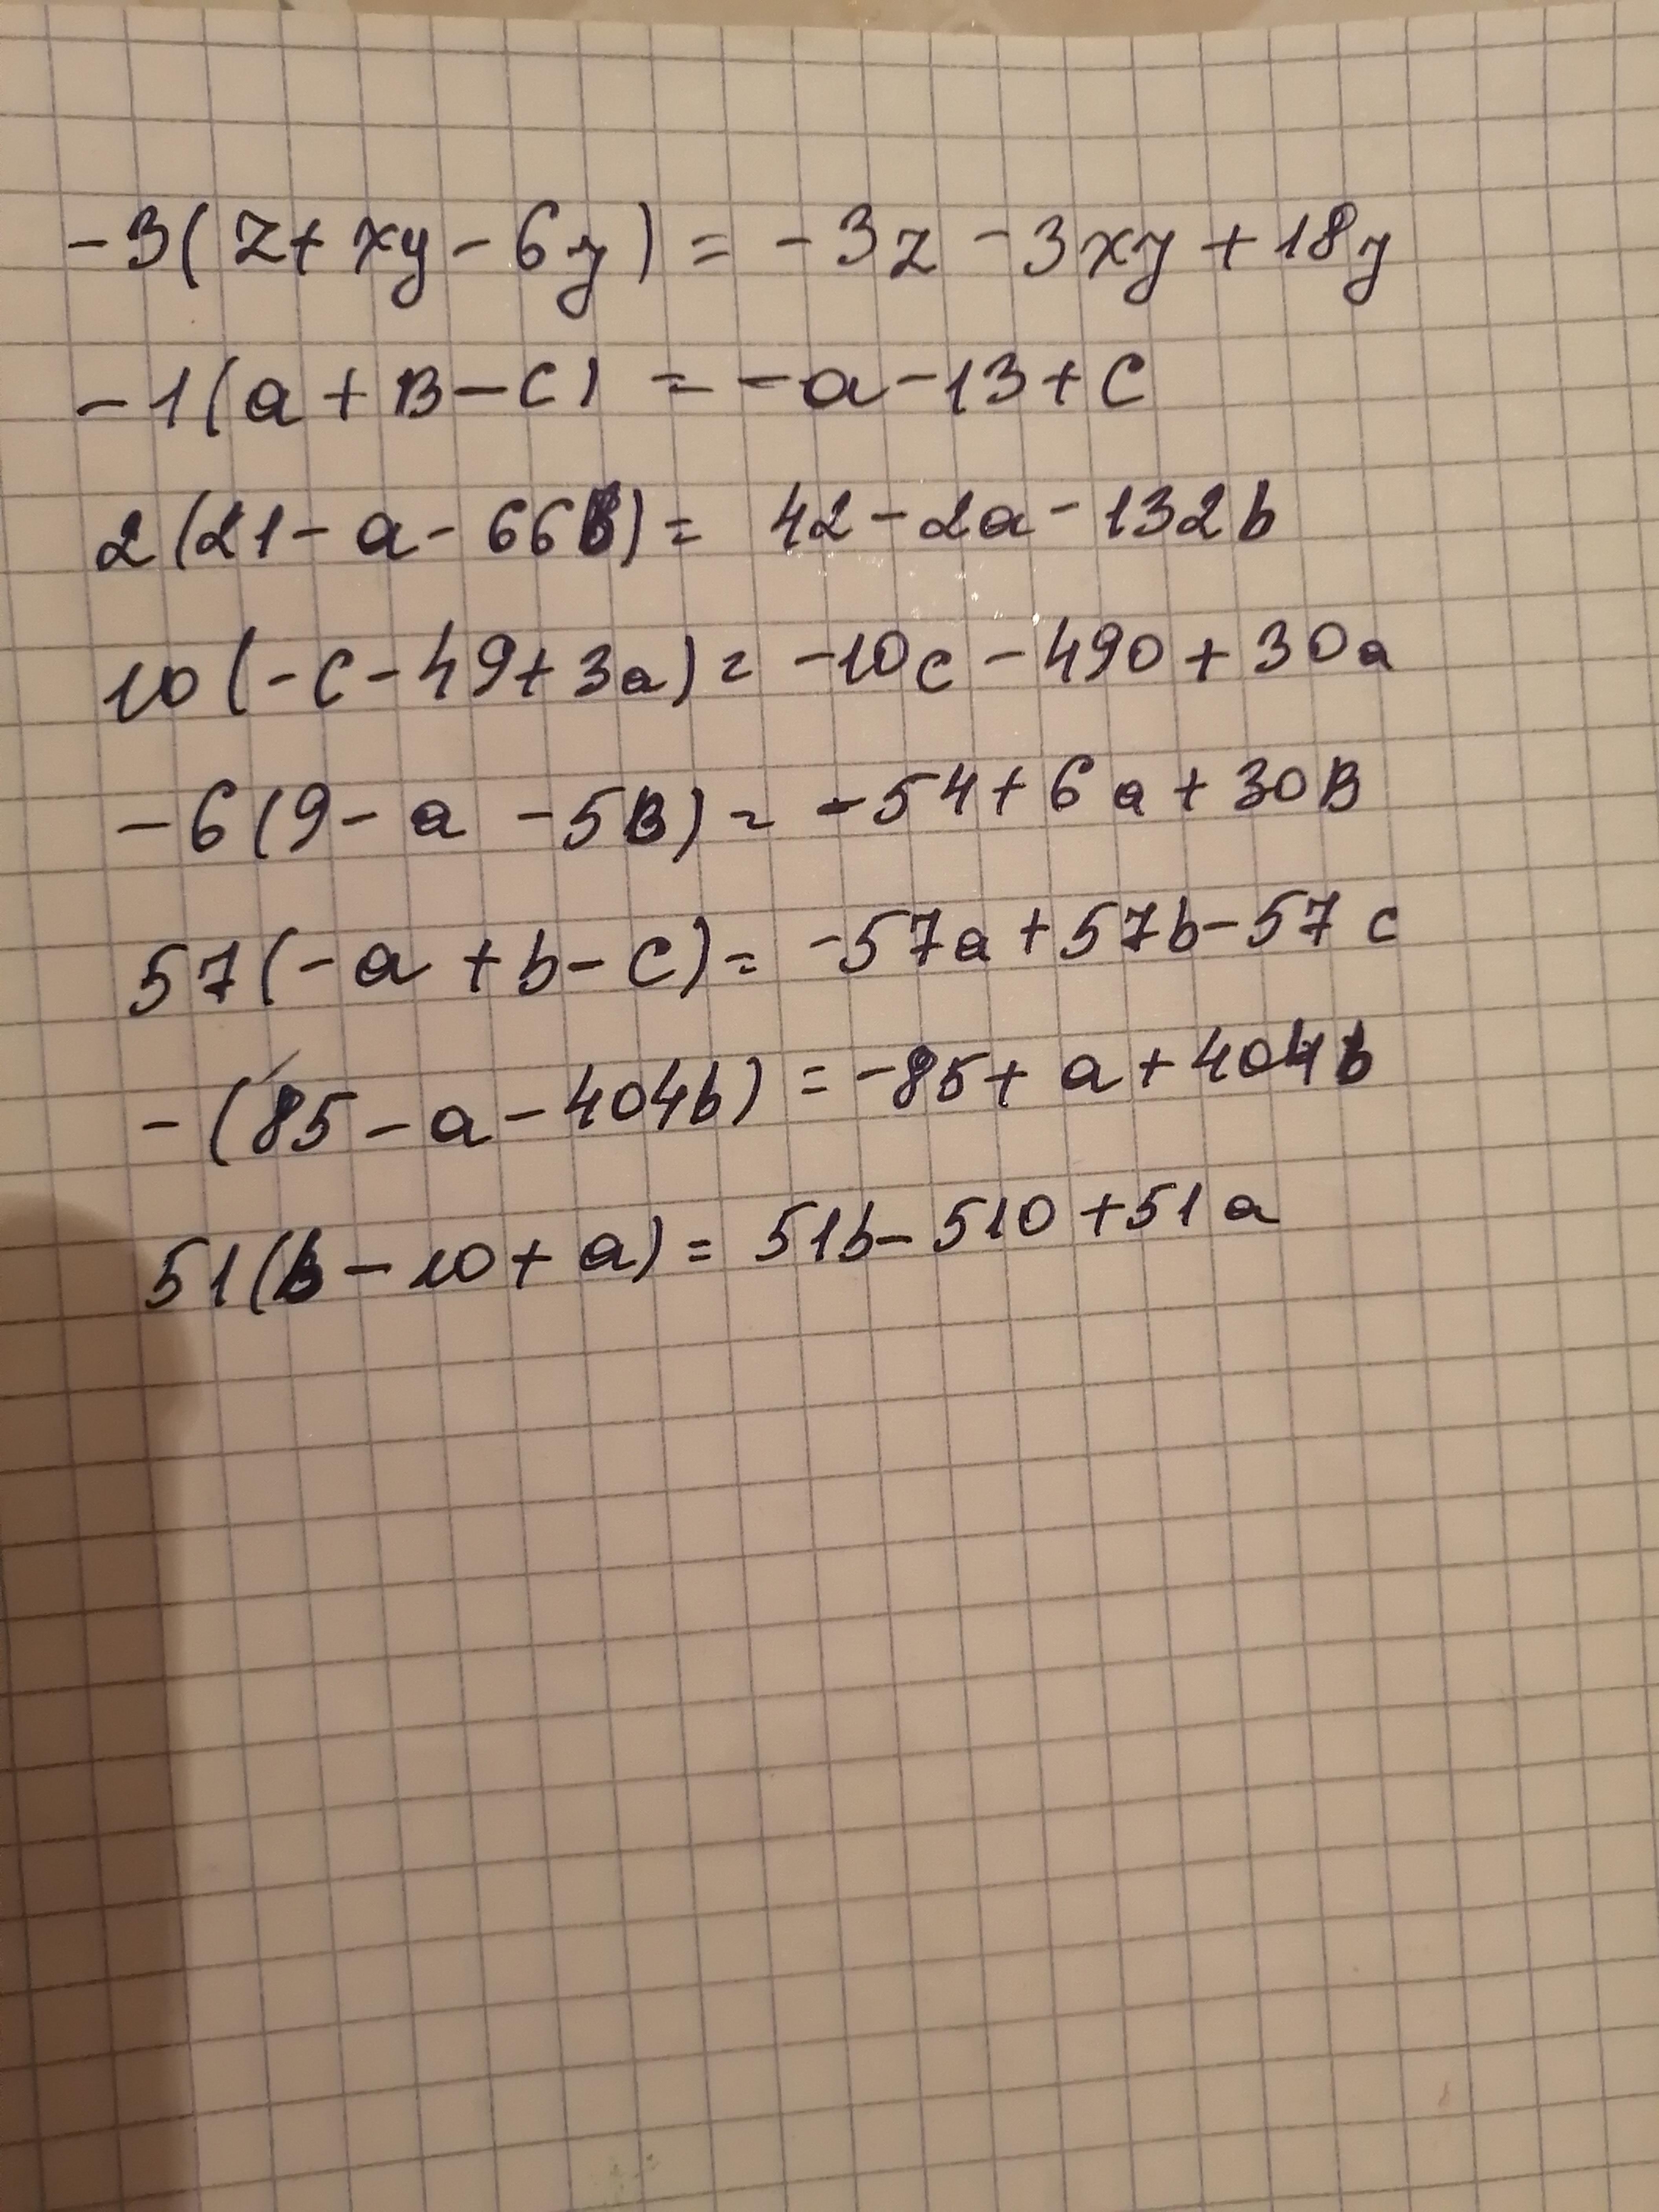 -3(z+xy-6y) = -3z-3xy+18y
-1(a+B-c) = -a-13+c
2(21-a-66B) = 42-2a-132b
10(-c-49+3a) = -10c-490+30a
-6(9-a-5B) = -54+6a+30B
57(-a+b-c) = -57a+57b-57c
-(85-a-404b) = -85+a+404b
51(b-10+a) = 51b-510+51a